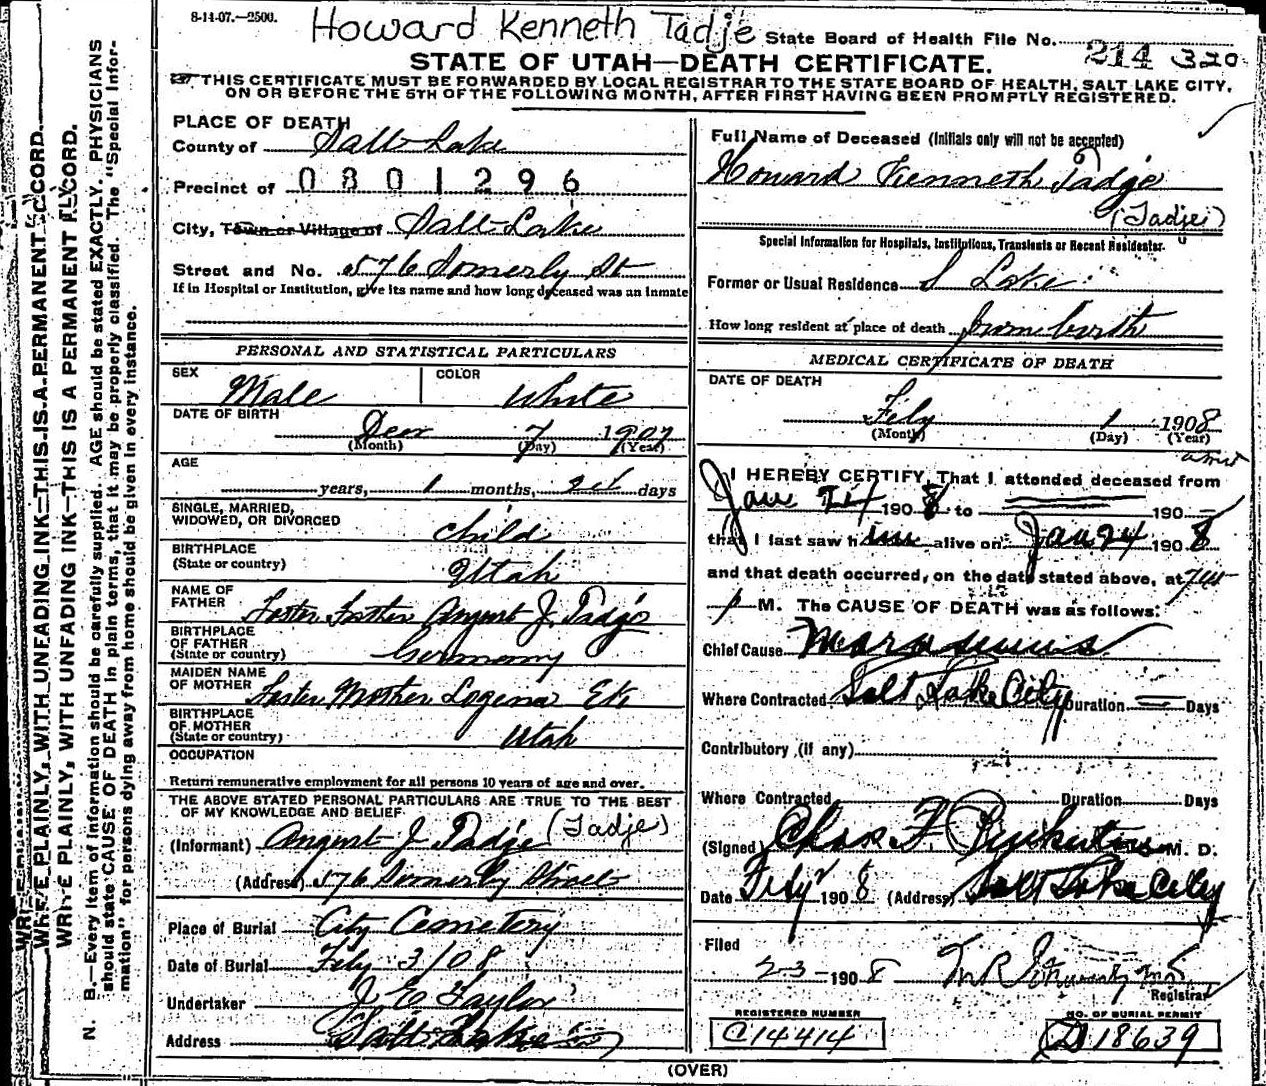 8-14-07.—2500.
Howard Kenneth Tadje
State Board of Health File No. 214 320
STATE OF UTAH—DEATH CERTIFICATE.
THIS CERTIFICATE MUST BE FORWARDED BY LOCAL REGISTRAR TO THE STATE BOARD OF HEALTH, SALT LAKE CITY,
ON OR BEFORE THE 5TH OF THE FOLLOWING MONTH, AFTER FIRST HAVING BEEN PROMPTLY REGISTERED.
WRITE PLAINLY, WITH UNFADING INK—THIS IS A PERMANENT RECORD.
WRITE PLAINLY, WITH UNFADING INK—THIS IS A PERMANENT RECORD.
N. B.—Every item of information should be carefully supplied. AGE should be stated EXACTLY. PHYSICIANS
should state CAUSE OF DEATH in plain terms, that it may be properly classified. The "Special Infor-
mation" for persons dying away from home should be given in every instance.
PLACE OF DEATH
County of Salt Lake
Precinct of 0801296
City, Town or Village of Salt Lake
Street and No. 576 Somerly St
If in Hospital or Institution, give its name and how long deceased was an inmate
PERSONAL AND STATISTICAL PARTICULARS
SEX Male COLOR White
DATE OF BIRTH
Dec 7 1907
(Month) (Day) (Year)
AGE
years, 1 months, 24 days
SINGLE, MARRIED,
WIDOWED, OR DIVORCED child
BIRTHPLACE
(State or country) Utah
NAME OF
FATHER Foster Father August J. Tadje
BIRTHPLACE
OF FATHER
(State or country) Germany
MAIDEN NAME
OF MOTHER Foster Mother Logena Ek
BIRTHPLACE
OF MOTHER
(State or country) Utah
OCCUPATION
Return remunerative employment for all persons 10 years of age and over.
THE ABOVE STATED PERSONAL PARTICULARS ARE TRUE TO THE BEST
OF MY KNOWLEDGE AND BELIEF
(Informant) August J Tadje (Tadje)
(Address) 576 Somerly Street
Place of Burial City Cemetery
Date of Burial Feby 3/08
Undertaker J E Taylor
Address Salt Lake
Full Name of Deceased (Initials only will not be accepted)
Howard Kenneth Tadje
(Tadje)
Special Information for Hospitals, Institutions, Transients or Recent Residents.
Former or Usual Residence S Lake
How long resident at place of death from birth
MEDICAL CERTIFICATE OF DEATH
DATE OF DEATH
Feby 1 1908
(Month) (Day) (Year)
I HEREBY CERTIFY, That I attended deceased from
Jan 24 1908 to 190
that I last saw him alive on Jan 24 1908
and that death occurred, on the date stated above, at
P M. The CAUSE OF DEATH was as follows:
Chief Cause Marasmus
Where Contracted Salt Lake City Duration Days
Contributory (if any)
Where Contracted Duration Days
(Signed) Chas F. M. D.
Date Feby 1908 (Address) Salt Lake City
Filed
2-3-1908
Registrar
REGISTERED NUMBER
C14414
NO. OF BURIAL PERMIT
D 18639
(OVER)